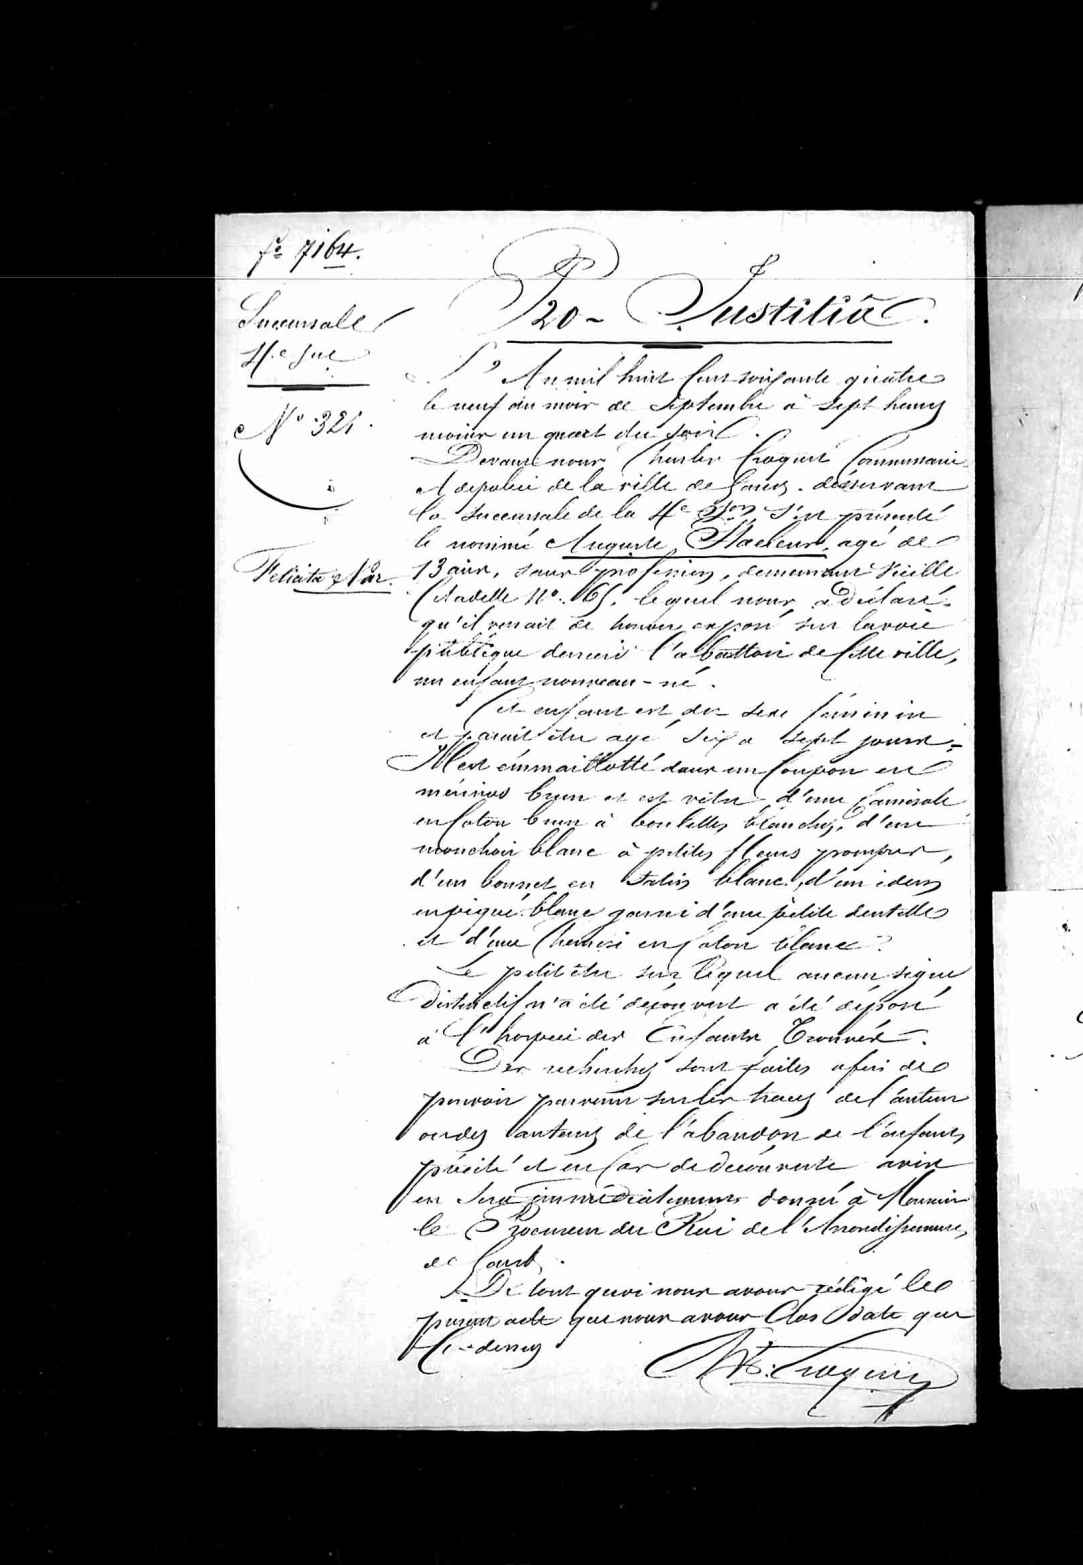 fo 7164.
Succursale
4e Sue
No 321.
Felicité Nar.
Pro - Justitiâ.
An mil huit cent soixante quatre
le neuf du mois de Septembre à sept heures
moins un quart du soir.
Devant nous Charles Croquet Commissaire
de police de la ville de Gand, désservant
la succursale de la 4e Son s'est présenté
le nommé Auguste, agé de
13 ans, sans profession, demeurant vieille
Citadelle No. 65, lequel nous a déclaré
qu'il venait de trouver exposé sur la voie
publique derrière l'abattoir de cette ville,
un enfant nouveau-né.
Cet enfant est du sexe féminin
et parait être agé six a sept jours.
Il est emmaillotté dans un coupon en
mérinos brun et est vêtu d'une camisole
en coton brun à boulettes blanches, d'un
mouchoir blanc à petites fleurs pourpres,
d'un bonnet en satin blanc, d'un idem
en piqué blanc garni d'une petite dentelle
et d'une Chemise en coton blanc.
Le petit être sur lequel aucun signe
distinctif n'a été découvert a été déposé
à l'hospice des Enfants Trouvés.
Des recherches sont faites afin de
pouvoir parvenir sur les traces de l'auteur
ou des auteurs de l'abandon de l'enfant
précité et en cas de découverte avis
en sera immédiatement donné à Monsieur
le Procureur du Roi de l'Arrondissement
de Gand.
De tout quoi nous avons rédigé le
présent acte que nous avons clos date que
Ci-dessus
Croquet